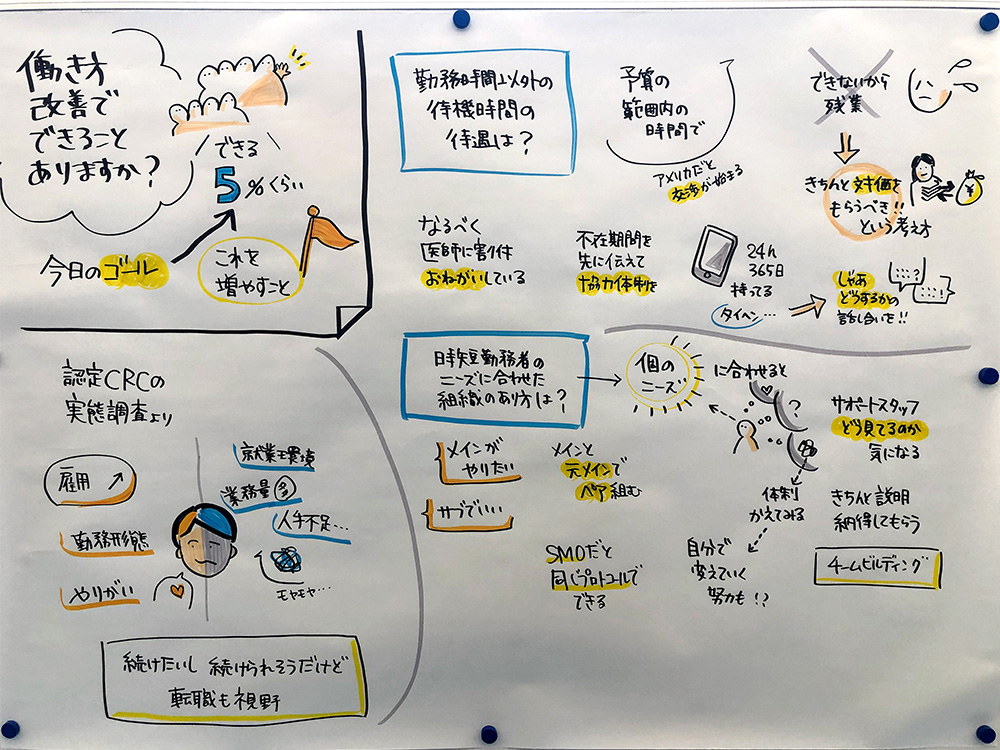 働き方
改善で
できること
ありますか?
できる
5%くらい
今日のゴール
これを
増やすこと
勤務時間以外の
待機時間の
待遇は?
予算の
範囲内の
時間で
アメリカだと
交渉が始まる
できないから
残業
きちんと対価を
もらうべき!!
という考え方
¥
なるべく
医師に割付
おねがいしている
不在期間を
先に伝えて
協力体制を
24h
365日
持ってる
タイヘン…
じゃあ
どうするかの
話し合いを!!
…?
…!
認定CRCの
実態調査より
雇用
勤務形態
やりがい
就業環境
業務量 多
人手不足…
モヤモヤ…
続けたいし 続けられそうだけど
転職も視野
時短勤務者の
ニーズに合わせた
組織のあり方は?
個の
ニーズ
に合わせると
?
サポートスタッフ
どう見てるのか
気になる
メインが
やりたい
サブでいい
メインと
元メインで
ペア組む
SMOだと
同じプロトコールで
できる
体制
かえてみる
自分で
変えていく
努力も!?
きちんと説明
納得してもらう
チームビルディング